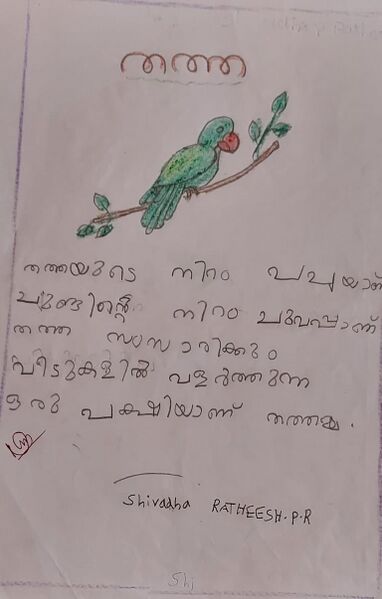 തത്ത
തത്തയുടെ നിറം പച്ചയാണ്
ചുണ്ടിന്റെ നിറം ചുവപ്പാണ്
തത്ത സംസാരിക്കും
വീടുകളിൽ വളർത്തുന്ന
ഒരു പക്ഷിയാണ് തത്തമ്മ.
Shivadha RATHEESH.P.R